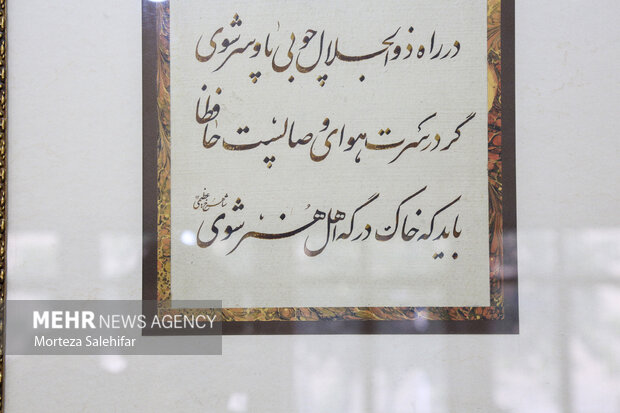 در راه ذوالجلال چو بی پا و سر شوی
گر در سرت هوای وصالیست حافظا
باید که خاک درگه اهل هنر شوی
MEHR NEWS AGENCY
Morteza Salehifar